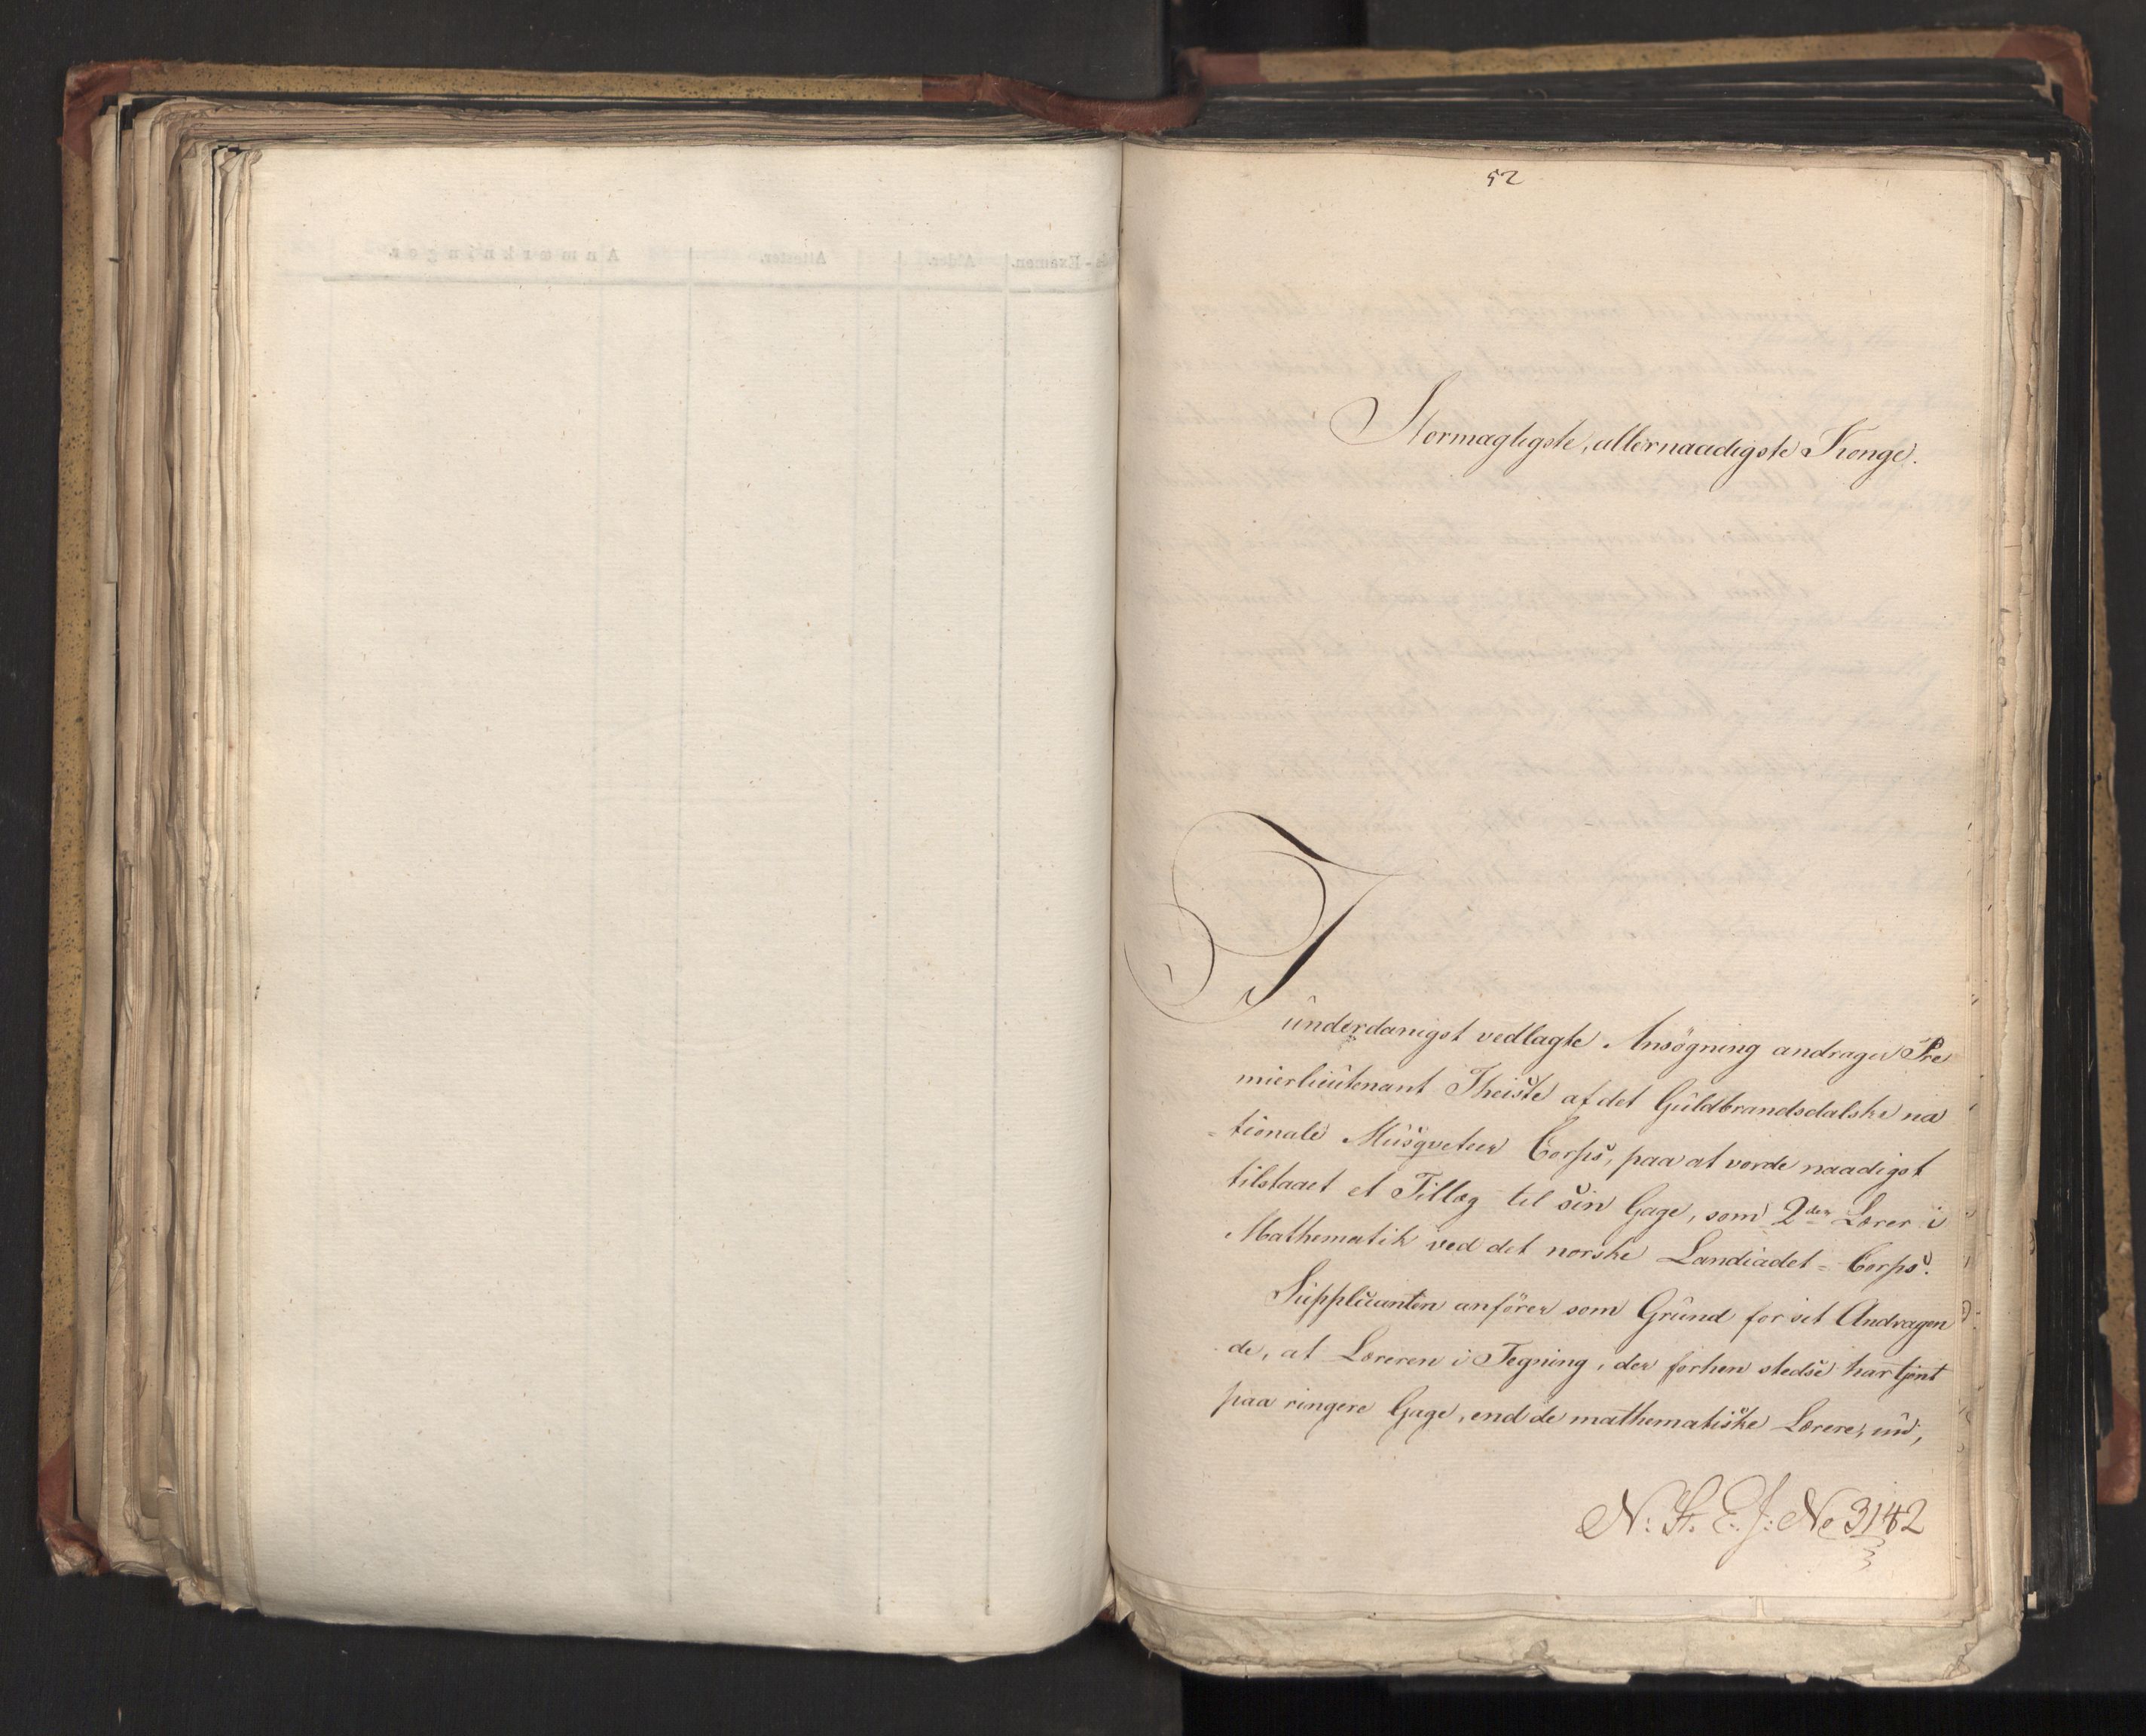 52
Stormægtigste, allernaadigste Konge.
I
underdanigst vedlagte Ansögning andrager Pre
mierlieutenant Theiste af det Guldbrandsdalske na
-tionale Musqveteer Corps, paa at vorde naadigst
tilstaaet et Tillæg til sin Gage, som 2den Lærer i
Mathematik ved det norske Landcadet-Corps.
Supplicanten anförer som Grund for sit Andragen
de, at Læreren i Tegning, der forhen stedse har tjent
paa ringere Gage, end de mathematiske Lærere, nu,
N: St. E. J: No 3142